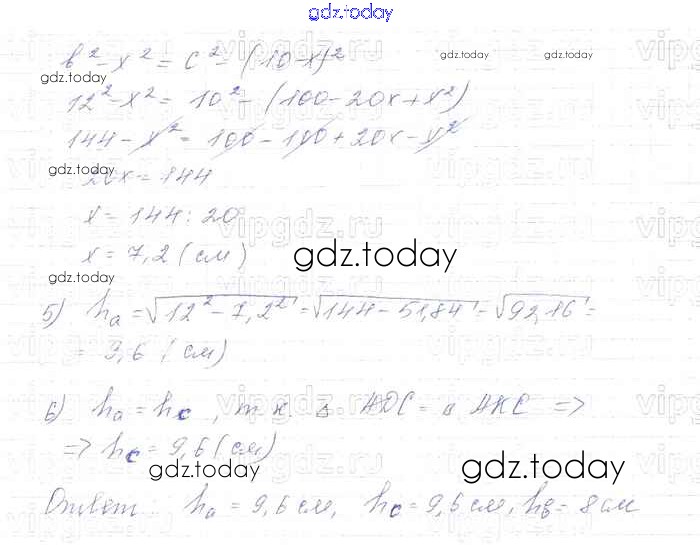 gdz.today
b² - x² = c² - (10-x)²
gdz.today gdz.today gdz.today
12² - x² = 10² - (100 - 20x + x²)
144 - x² = 100 - 100 + 20x - x²
gdz.today
20x = 144
x = 144 : 20
x = 7,2 (см)
gdz.today
5) hₐ = √12² - 7,2² = √144 - 51,84 = √92,16 =
= 9,6 (см)
6) hₐ = h_c, т.к. △ ADC = △ AKC =>
=> h_c = 9,6 (см)
gdz.today gdz.today
Ответ hₐ = 9,6 см, h_c = 9,6 см, h_в = 8 см